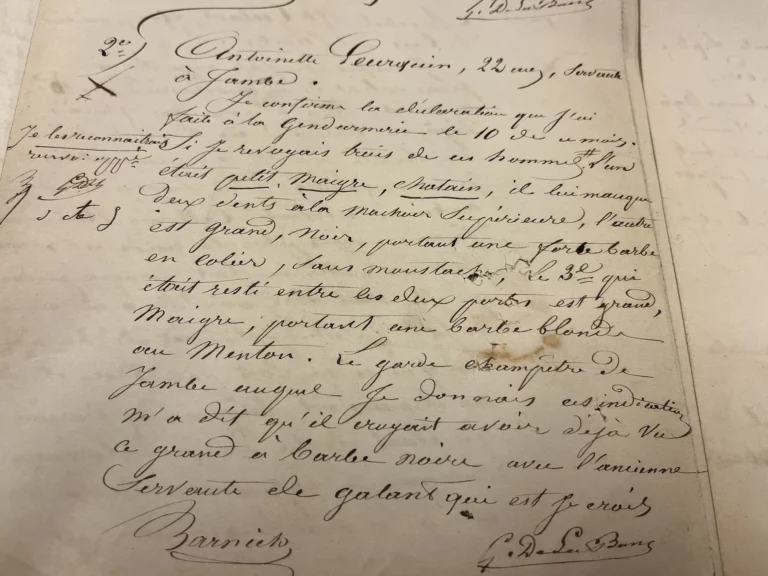 G. De Le Bun
2e
Antoinette Leurquin, 22 ans, servante
à Jambe.
Je confirme la déclaration que j'ai
faite à la Gendarmerie le 10 de ce mois.
Je les reconnaitrais
Si je revoyais trois de ces hommes # l'un
était petit, maigre, chatain, il lui manque
deux dents à la machoir Supérieure, l'autre
est grand, noir, portant une forte barbe
en colier, sans moustache, Le 3e qui
était resté entre les deux portes est grand,
Maigre, portant une barbe blonde
au Menton. Le garde champêtre de
Jambe auquel Je donnais ces indications
m'a dit qu'il croyait avoir déjà vu
ce grand à barbe noire avec l'ancienne
Servante de galant qui est je crois
Barnich
G. De Le Bun